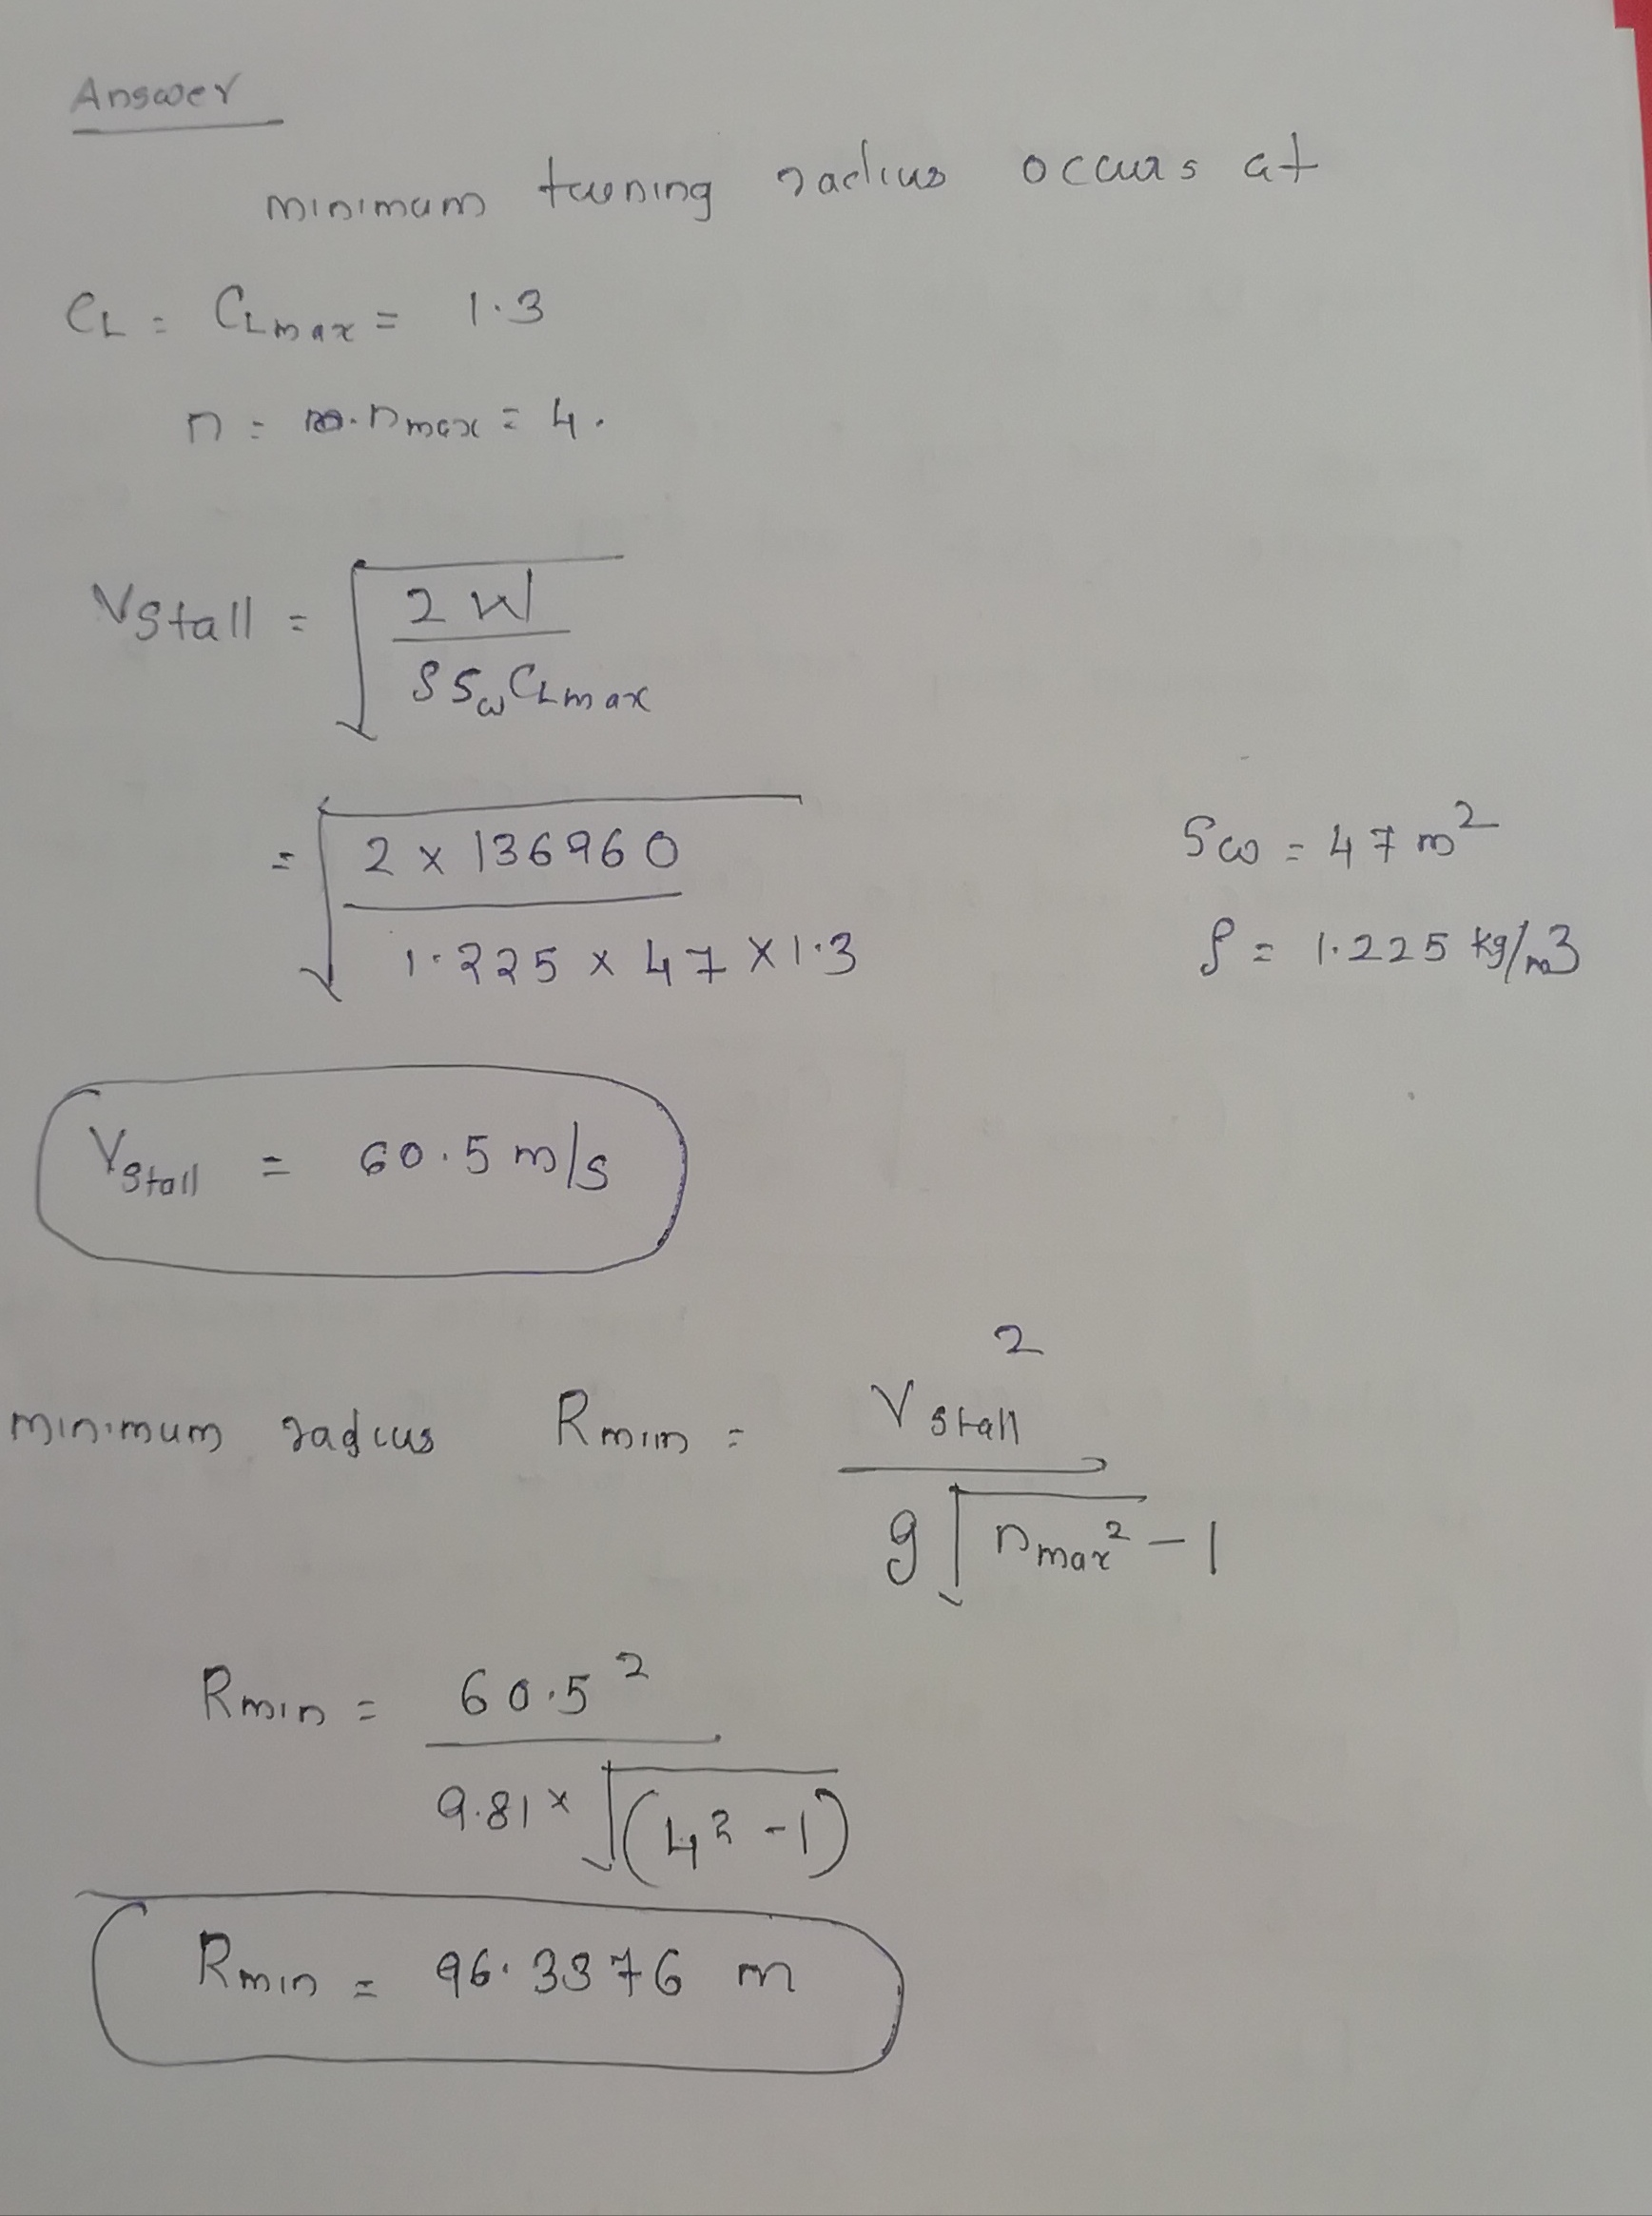 Answer
minimum turning radius occurs at
CL = CLmax = 1.3
n = nmax = 4.
Vstall = √(2W / ρ Sw CLmax)
= √(2 × 136960 / 1.225 × 47 × 1.3)
Sw = 47 m²
ρ = 1.225 kg/m3
Vstall = 60.5 m/s
minimum radius Rmin = Vstall² / g √nmax² - 1
Rmin = 60.5² / 9.81 × √(4² - 1)
Rmin = 96.3376 m